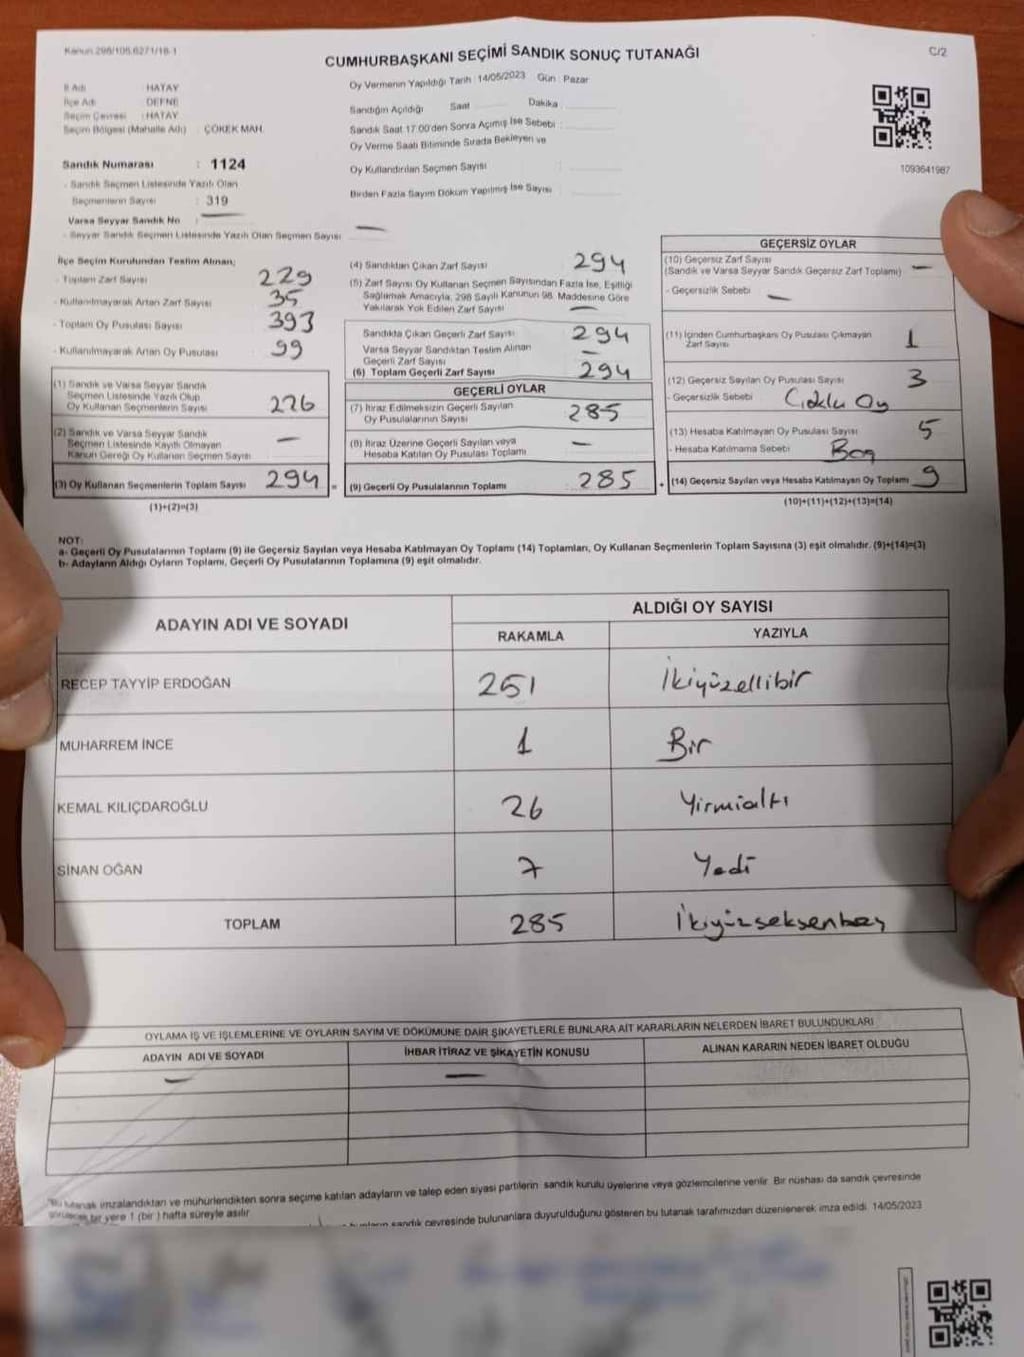 Kanun 298/105,6271/18-1
CUMHURBAŞKANI SEÇİMİ SANDIK SONUÇ TUTANAĞI
C/2
Oy Vermenin Yapıldığı Tarih : 14/05/2023 Gün : Pazar
İl Adı : HATAY
İlçe Adı : DEFNE
Seçim Çevresi : HATAY
Seçim Bölgesi (Mahalle Adı) : ÇÖKEK MAH.
Sandık Numarası : 1124
- Sandık Seçmen Listesinde Yazılı Olan
Seçmenlerin Sayısı : 319
Varsa Seyyar Sandık No :
- Seyyar Sandık Seçmen Listesinde Yazılı Olan Seçmen Sayısı
Sandığın Açıldığı Saat Dakika
Sandık Saat 17:00'den Sonra Açımış İse Sebebi :
Oy Verme Saati Bitiminde Sırada Bekleyen ve
Oy Kullandırılan Seçmen Sayısı
Birden Fazla Sayım Döküm Yapılmış İse Sayısı
1093641987
İlçe Seçim Kurulundan Teslim Alınan;
- Toplam Zarf Sayısı 229
- Kullanılmayarak Artan Zarf Sayısı 35
- Toplam Oy Pusulası Sayısı 393
- Kullanılmayarak Artan Oy Pusulası 99
(1) Sandık ve Varsa Seyyar Sandık
Seçmen Listesinde Yazılı Olup
Oy Kullanan Seçmenlerin Sayısı 226
(2) Sandık ve Varsa Seyyar Sandık
Seçmen Listesinde Kayıtlı Olmayan
Kanun Gereği Oy Kullanan Seçmen Sayısı —
(3) Oy Kullanan Seçmenlerin Toplam Sayısı 294 =
(1)+(2)=(3)
(4) Sandıktan Çıkan Zarf Sayısı 294
(5) Zarf Sayısı Oy Kullanan Seçmen Sayısından Fazla İse, Eşitliği
Sağlamak Amacıyla, 298 Sayılı Kanunun 98. Maddesine Göre
Yakılarak Yok Edilen Zarf Sayısı —
Sandıkta Çıkan Geçerli Zarf Sayısı 294
Varsa Seyyar Sandıktan Teslim Alınan
Geçerli Zarf Sayısı —
(6) Toplam Geçerli Zarf Sayısı 294
GEÇERLİ OYLAR
(7) İtiraz Edilmeksizin Geçerli Sayılan
Oy Pusulalarının Sayısı 285
(8) İtiraz Üzerine Geçerli Sayılan veya
Hesaba Katılan Oy Pusulası Toplamı —
(9) Geçerli Oy Pusulalarının Toplamı : 285 +
GEÇERSİZ OYLAR
(10) Geçersiz Zarf Sayısı
(Sandık ve Varsa Seyyar Sandık Geçersiz Zarf Toplamı) —
- Geçersizlik Sebebi —
(11) İçinden Cumhurbaşkanı Oy Pusulası Çıkmayan
Zarf Sayısı 1
(12) Geçersiz Sayılan Oy Pusulası Sayısı 3
- Geçersizlik Sebebi Çoklu Oy
(13) Hesaba Katılmayan Oy Pusulası Sayısı 5
- Hesaba Katılmama Sebebi Boş
(14) Geçersiz Sayılan veya Hesaba Katılmayan Oy Toplamı 9
(10)+(11)+(12)+(13)=(14)
NOT:
a- Geçerli Oy Pusulalarının Toplamı (9) ile Geçersiz Sayılan veya Hesaba Katılmayan Oy Toplamı (14) Toplamları, Oy Kullanan Seçmenlerin Toplam Sayısına (3) eşit olmalıdır. (9)+(14)=(3)
b- Adayların Aldığı Oyların Toplamı, Geçerli Oy Pusulalarının Toplamına (9) eşit olmalıdır.
ADAYIN ADI VE SOYADI
ALDIĞI OY SAYISI
RAKAMLA YAZIYLA
RECEP TAYYİP ERDOĞAN 251 İkiyüzellibir
MUHARREM İNCE 1 Bir
KEMAL KILIÇDAROĞLU 26 Yirmialtı
SİNAN OĞAN 7 Yedi
TOPLAM 285 İkiyüzseksenbeş
OYLAMA İŞ VE İŞLEMLERİNE VE OYLARIN SAYIM VE DÖKÜMÜNE DAİR ŞİKAYETLERLE BUNLARA AİT KARARLARIN NELERDEN İBARET BULUNDUKLARI
ADAYIN ADI VE SOYADI İHBAR İTİRAZ VE ŞİKAYETİN KONUSU ALINAN KARARIN NEDEN İBARET OLDUĞU
— —
*Bu tutanak imzalandıktan ve mühürlendikten sonra seçime katılan adayların ve talep eden siyasi partilerin sandık kurulu üyelerine veya gözlemcilerine verilir. Bir nüshası da sandık çevresinde
görülecek bir yere 1 (bir) hafta süreyle asılır.
sandık çevresinde bulunanlara duyurulduğunu gösteren bu tutanak tarafımızdan düzenlenerek imza edildi. 14/05/2023